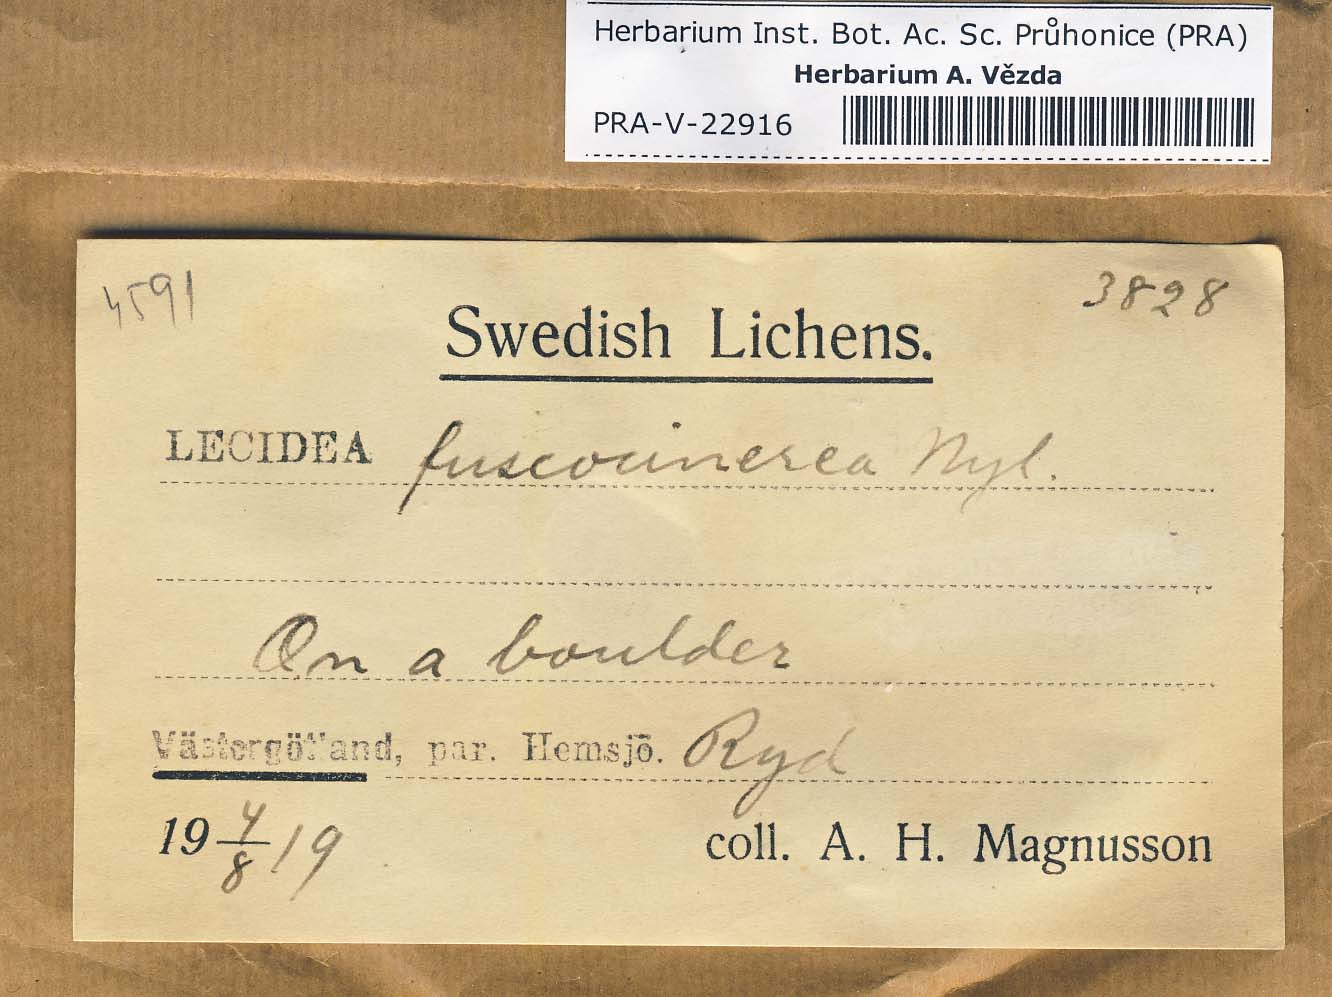 Herbarium Inst. Bot. Ac. Sc. Průhonice (PRA)
Herbarium A. Vězda
PRA-V-22916
4591
3828
Swedish Lichens.
LECIDEA fuscocinerea Nyl.
On a boulder
Västergötland, par. Hemsjö. Ryd
19 4/8 19
coll. A. H. Magnusson